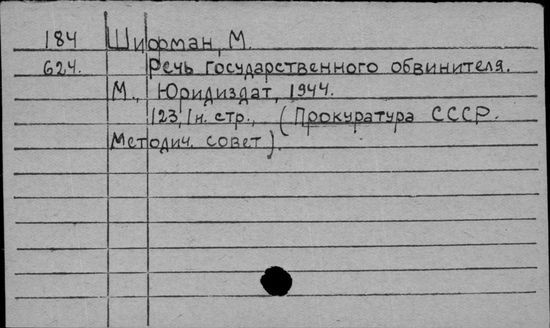 184 Шифман, М.
624. Речь государственного обвинителя.
М., Юриздат, 1944.
123, 1н. стр., (Прокуратура СССР.
Методич. совет).